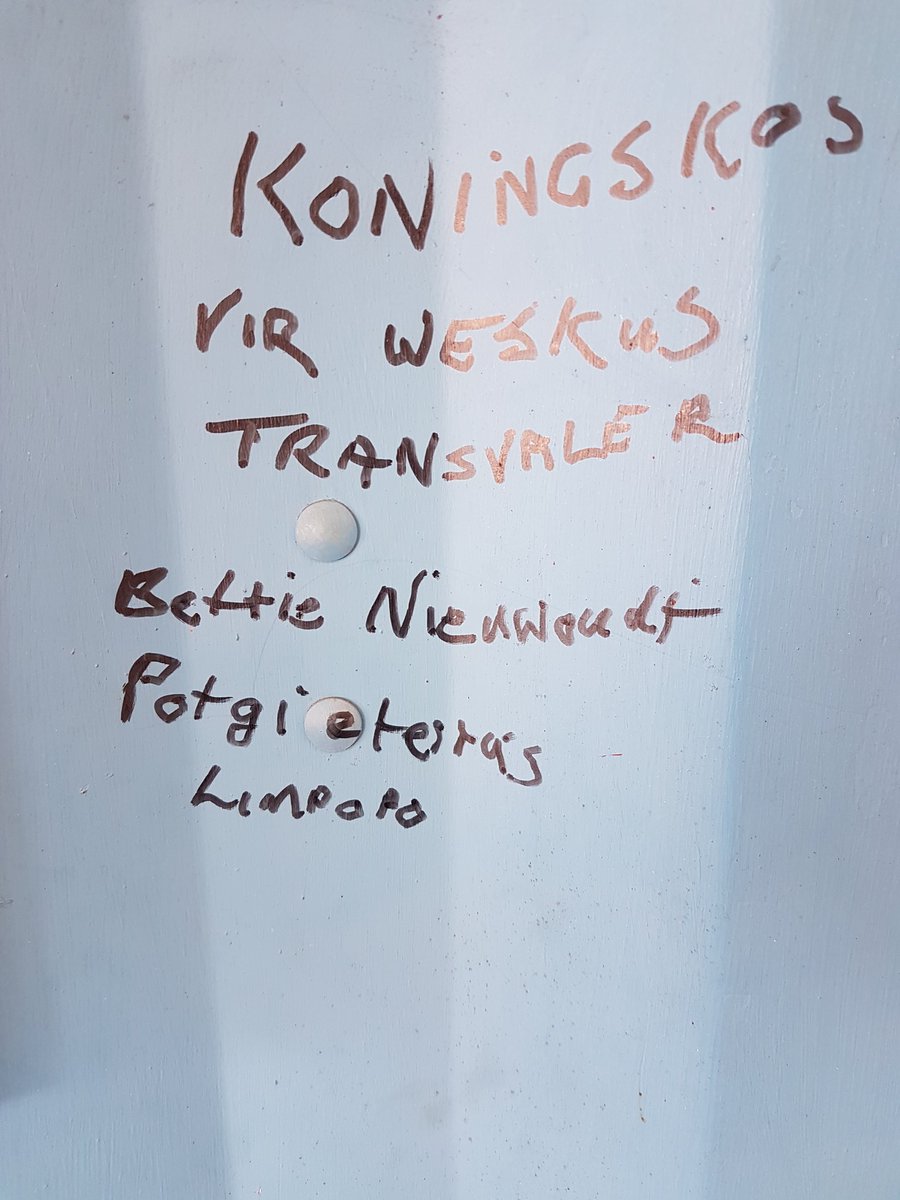 KONINGSKOS
VIR WESKUS
TRANSVALER
Bettie Nieuwoudt
Potgietersrus
LIMPOPO